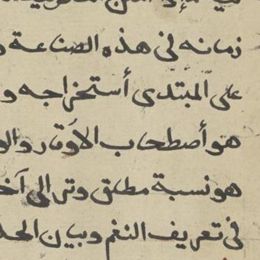 زمانه فى هذه الصناعة
على المبتدى أستخراجه و
هو أصطحاب الأوتار والو
هو نسبة مطلق وتر الى آخـ
فى تعريف النغم وبيان الحد